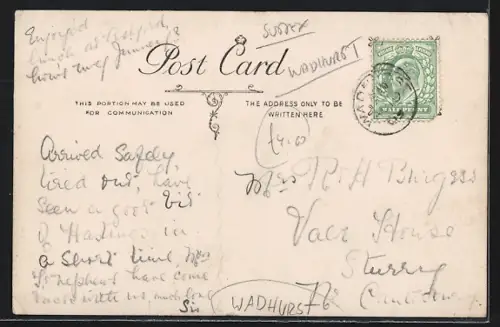 Enjoyed
lunch at
SUSSEX
WADHURST
Post Card
THIS PORTION MAY BE USED
FOR COMMUNICATION
THE ADDRESS ONLY TO BE
WRITTEN HERE
HALFPENNY
WADHURST
£4.00
Arrived Safely,
tired out, have
seen a good bit
of Hastings in
a short time, Mrs
Stephens have come
down with us, much love
Sis
Mrs R H Burgess
Vale House
Sturry
Nr Canterbury
WADHURST